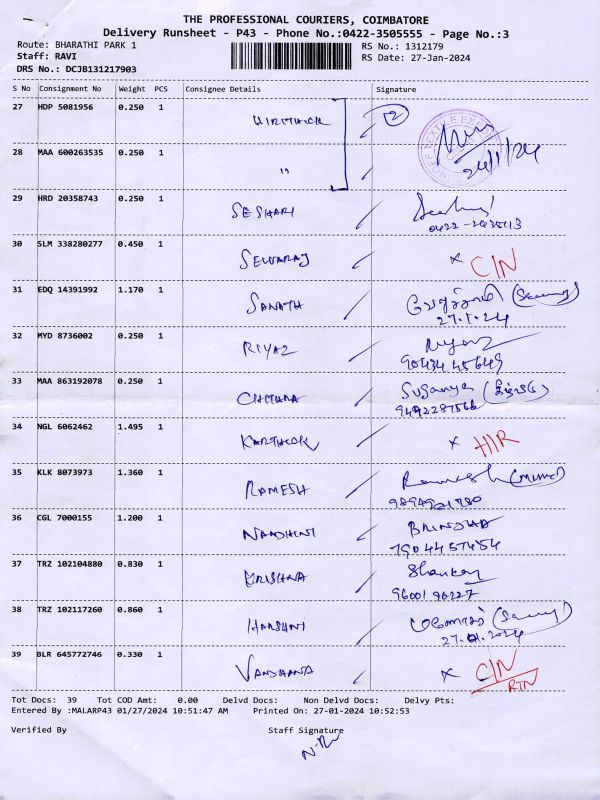 THE PROFESSIONAL COURIERS, COIMBATORE
Delivery Runsheet - P43 - Phone No.:0422-3505555 - Page No.:3
Route: BHARATHI PARK 1 RS No.: 1312179
Staff: RAVI RS Date: 27-Jan-2024
DRS No.: DCJB131217903
S No Consignment No Weight PCS Consignee Details Signature
27 HDP 5081956 0.250 1 2
28 MAA 600263535 0.250 1 "
29 HRD 20358743 0.250 1 SESHARI
0422-2435113
30 SLM 338280277 0.450 1 SELVARAJ x C/N
31 EDQ 14391992 1.170 1 SANATH
27.1.24
32 MYD 8736002 0.250 1 RIYAZ
90434 45649
33 MAA 863192078 0.250 1 CHITHRA Suganya
34 NGL 6062462 1.495 1 KARTHICK x H/R
35 KLK 8073973 1.360 1 RAMESH Ramesh
36 CGL 7000155 1.200 1 NANDHINI BRINDHA
7904457454
37 TRZ 102104880 0.830 1 KRISHNA Shankar
9600196227
38 TRZ 102117260 0.860 1 HARSHNI
27.01.2024
39 BLR 645772746 0.330 1 VANDHANA x C/N
RTN
Tot Docs: 39 Tot COD Amt: 0.00 Delvd Docs: Non Delvd Docs: Delvy Pts:
Entered By :MALARP43 01/27/2024 10:51:47 AM Printed On: 27-01-2024 10:52:53
Verified By Staff Signature